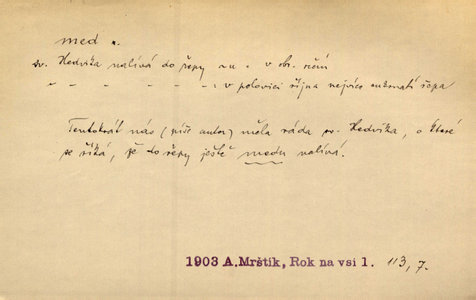 med m.
sv. Hedvika nalívá do řepy
- - - - - , v polovici října nejvíce cukrnatí řepa
Tentokrát nás (píše autor) měla ráda sv. Hedvika, o které
se říká, že do řepy ještě medu nalívá.
1903 A. Mrštík, Rok na vsi 1. 113, 7.